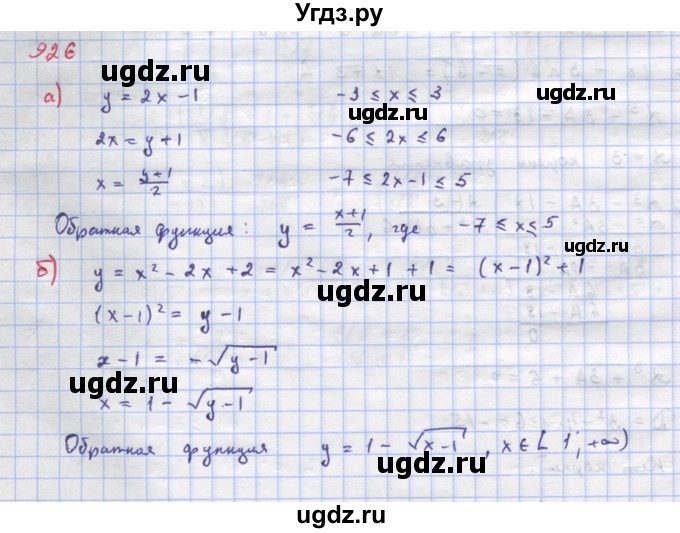 Угдз.ру
926
ugdz.ru
ugdz.ru
а) y = 2x - 1    -3 ≤ x ≤ 3
2x = y + 1    -6 ≤ 2x ≤ 6
ugdz.ru
x = (y+1)/2    -7 ≤ 2x-1 ≤ 5
Обратная функция: y = (x+1)/2, где -7 ≤ x ≤ 5
ugdz.ru
б) y = x² - 2x + 2 = x² - 2x + 1 + 1 = (x-1)² + 1
ugdz.ru
ugdz.ru
(x-1)² = y - 1
x - 1 = -√(y-1)
ugdz.ru
x = 1 - √(y-1)
Обратная функция y = 1 - √(x-1), x ∈ [1; +∞)
ugdz.ru
ugdz.ru
ugdz.ru